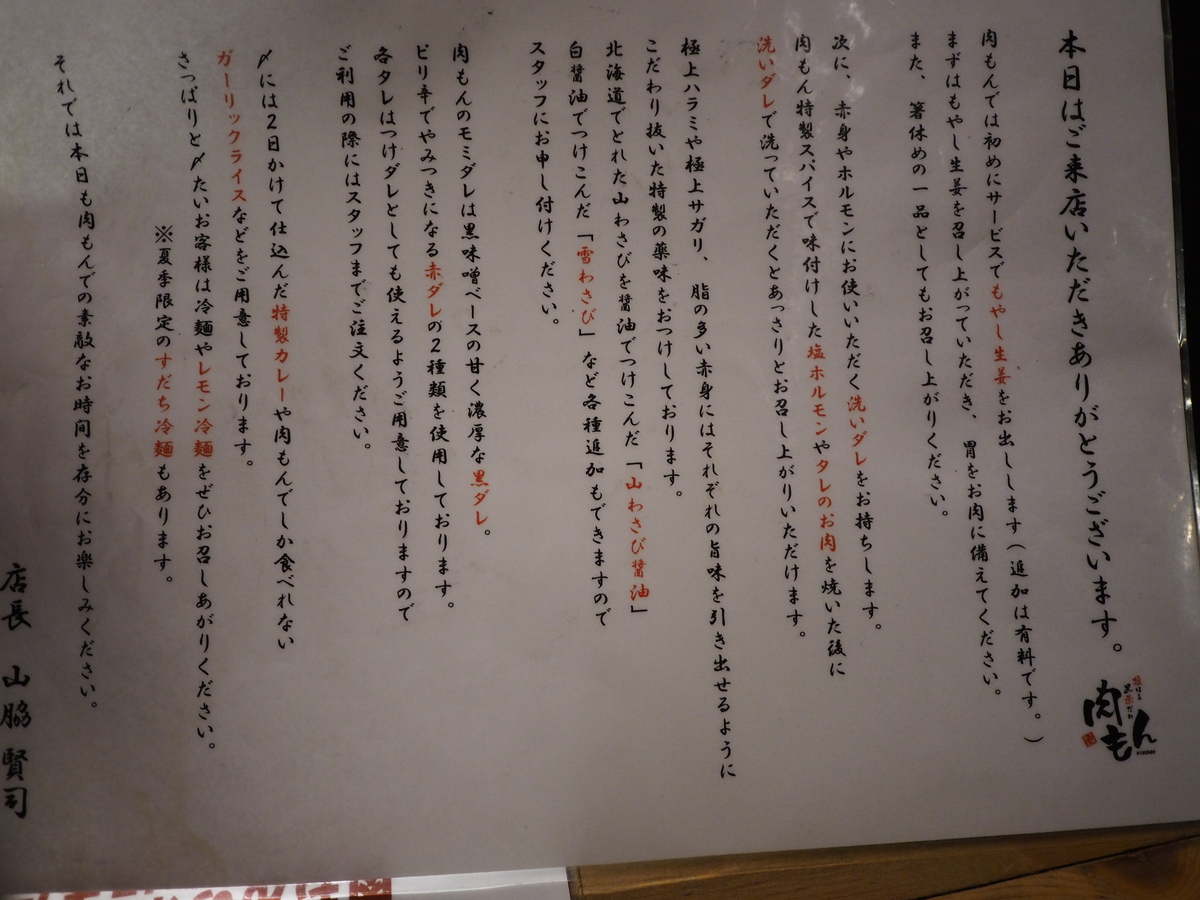 本日はご来店いただきありがとうございます。
肉もんでは初めにサービスでもやし生姜をお出しします（追加は有料です。）
まずはもやし生姜を召し上がっていただき、胃をお肉に備えてください。
また、箸休めの一品としてもお召し上がりください。
次に、赤身やホルモンにお使いいただく洗いダレをお持ちします。
肉もん特製スパイスで味付けした塩ホルモンやタレのお肉を焼いた後に
洗いダレで洗っていただくとあっさりとお召し上がりいただけます。
極上ハラミや極上サガリ、脂の多い赤身にはそれぞれの旨味を引き出せるように
こだわり抜いた特製の薬味をおつけしております。
北海道でとれた山わさびを醤油でつけこんだ「山わさび醤油」
白醤油でつけこんだ「雪わさび」など各種追加もできますので
スタッフにお申し付けください。
肉もんのモミダレは黒味噌ベースの甘く濃厚な黒ダレ。
ピリ辛でやみつきになる赤ダレの2種類を使用しております。
各タレはつけダレとしても使えるようご用意しておりますので
ご利用の際にはスタッフまでご注文ください。
〆には2日かけて仕込んだ特製カレーや肉もんでしか食べれない
ガーリックライスなどをご用意しております。
さっぱりと〆たいお客様は冷麺やレモン冷麺をぜひお召しあがりください。
※夏季限定のすだち冷麺もあります。
それでは本日も肉もんでの素敵なお時間を存分にお楽しみください。
店長 山脇 賢司
肉もん